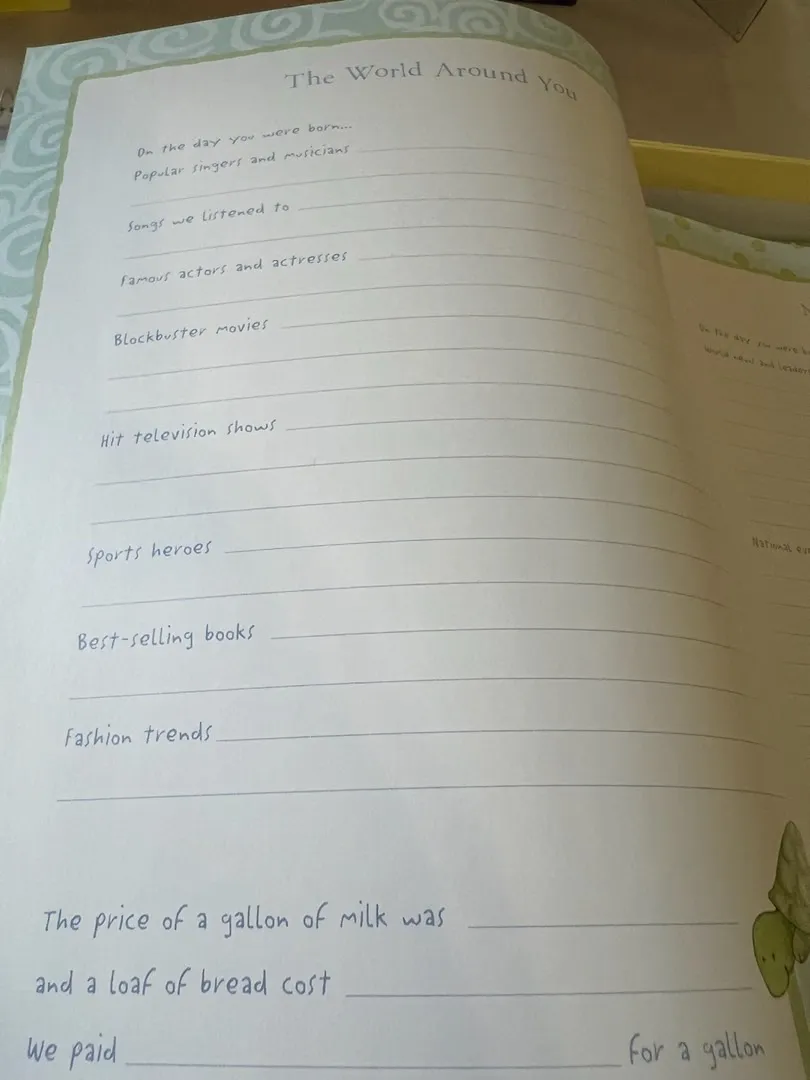 The World Around You
On the day you were born...
Popular singers and musicians
Songs we listened to
Famous actors and actresses
Blockbuster movies
Hit television shows
Sports heroes
Best-selling books
Fashion trends
The price of a gallon of milk was
and a loaf of bread cost
We paid for a gallon
On the day you were
World
and
National